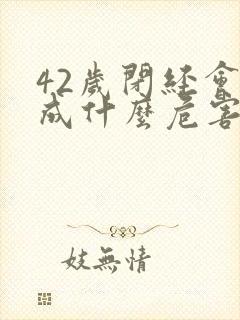 42歲閉經會
成什麼危害
妓無情